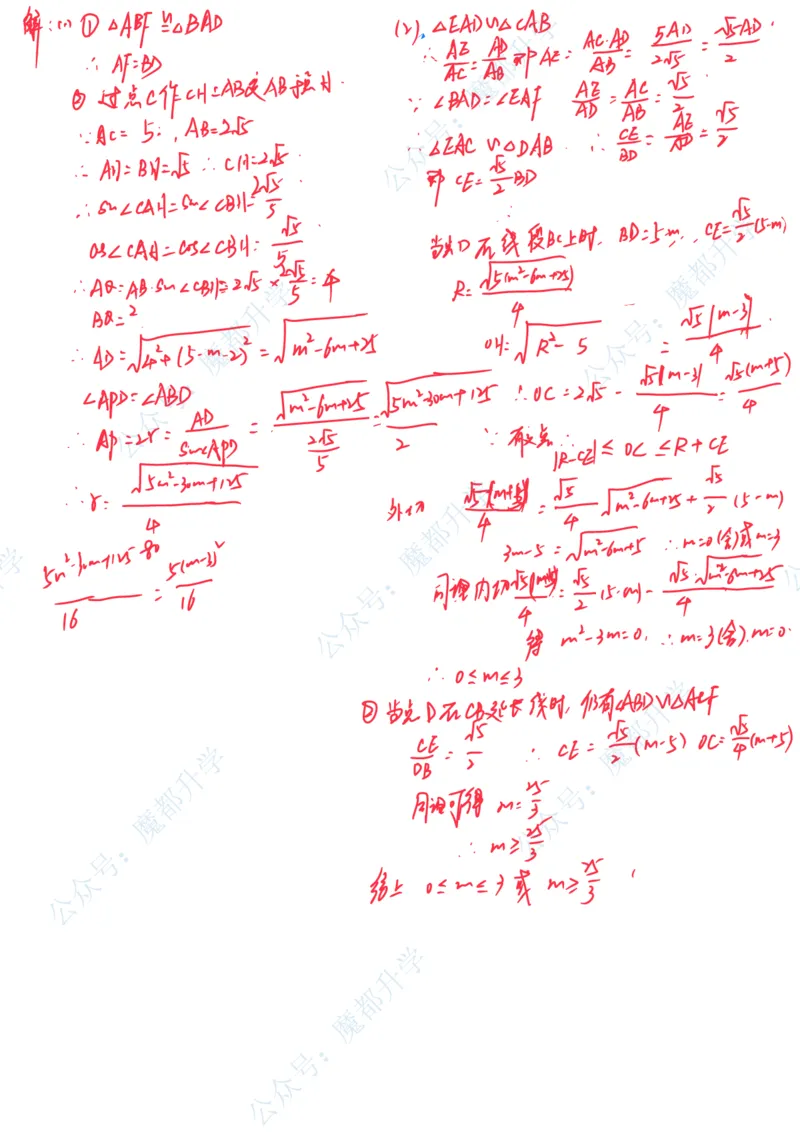 解:(1) ① △ABF ≌ △BAD
∴ AF=BD
② 过点C作CH⊥AB交AB于点H.
∵AC= 5. , AB=2√5
∴ AH=BH=√5 ∴ CH=2√5
∴ sin∠CAH=sin∠CBH=2√5/5
cos∠CAH=cos∠CBH=√5/5
∴ AQ=AB·sin∠CBH=2√5×2√5/5=4
BQ=2
∴ AD=√(4²+(5-m-2)²)=√(m²-6m+25)
∠APD=∠ABD
∴ AP=2r=AD/sin∠APD=√(m²-6m+25)/(2√5/5)=√(5m²-30m+125)/2
∴ r=√(5m²-30m+125)/4
(5m²-30m+125-80)/16=5(m-3)²/16
(2). △EAD∽△CAB
∴ AE/AC=AD/AB 即AE=AC·AD/AB=5AD/2√5=√5AD/2.
∵ ∠BAD=∠EAF AE/AD=AC/AB=√5/2
∴ △EAC∽△DAB ∴ CE/BD=AE/AD=√5/2
即 CE=√5/2 BD
当点D在线段BC上时, BD=5-m, CE=√5/2(5-m)
R=√(5(m²-6m+25))/4
OH=√(R²-5) =√5|m-3|/4.
∴OC=2√5-√5|m-3|/4=√5(m+5)/4
∵ 有交点 ∴ |R-CE|≤OC≤R+CE
外切 √5(m+5)/4=√5/4√(m²-6m+25)+√5/2(5-m)
3m-5=√(m²-6m+25) ∴ m=0(舍)或m=3
同理内切√5(m+5)/4=√5/2(5-m)-√5·√(m²-6m+25)/4
得 m²-3m=0. ∴m=3(舍).m=0.
∴ 0≤m≤3
② 当点D在CB延长线时, 仍有△ABD∽△ACF
CE/DB=√5/2 ∴ CE=√5/2(m-5) OC=√5/4(m+5)
同理可得 m=25/3
∴ m≥25/3
综上 0≤m≤3或 m≥25/3
公众号：魔都升学
公众号：魔都升学
公众号：魔都升学
公众号：魔都升学
公众号：魔都升学
公众号：魔都升学
公众号：魔都升学